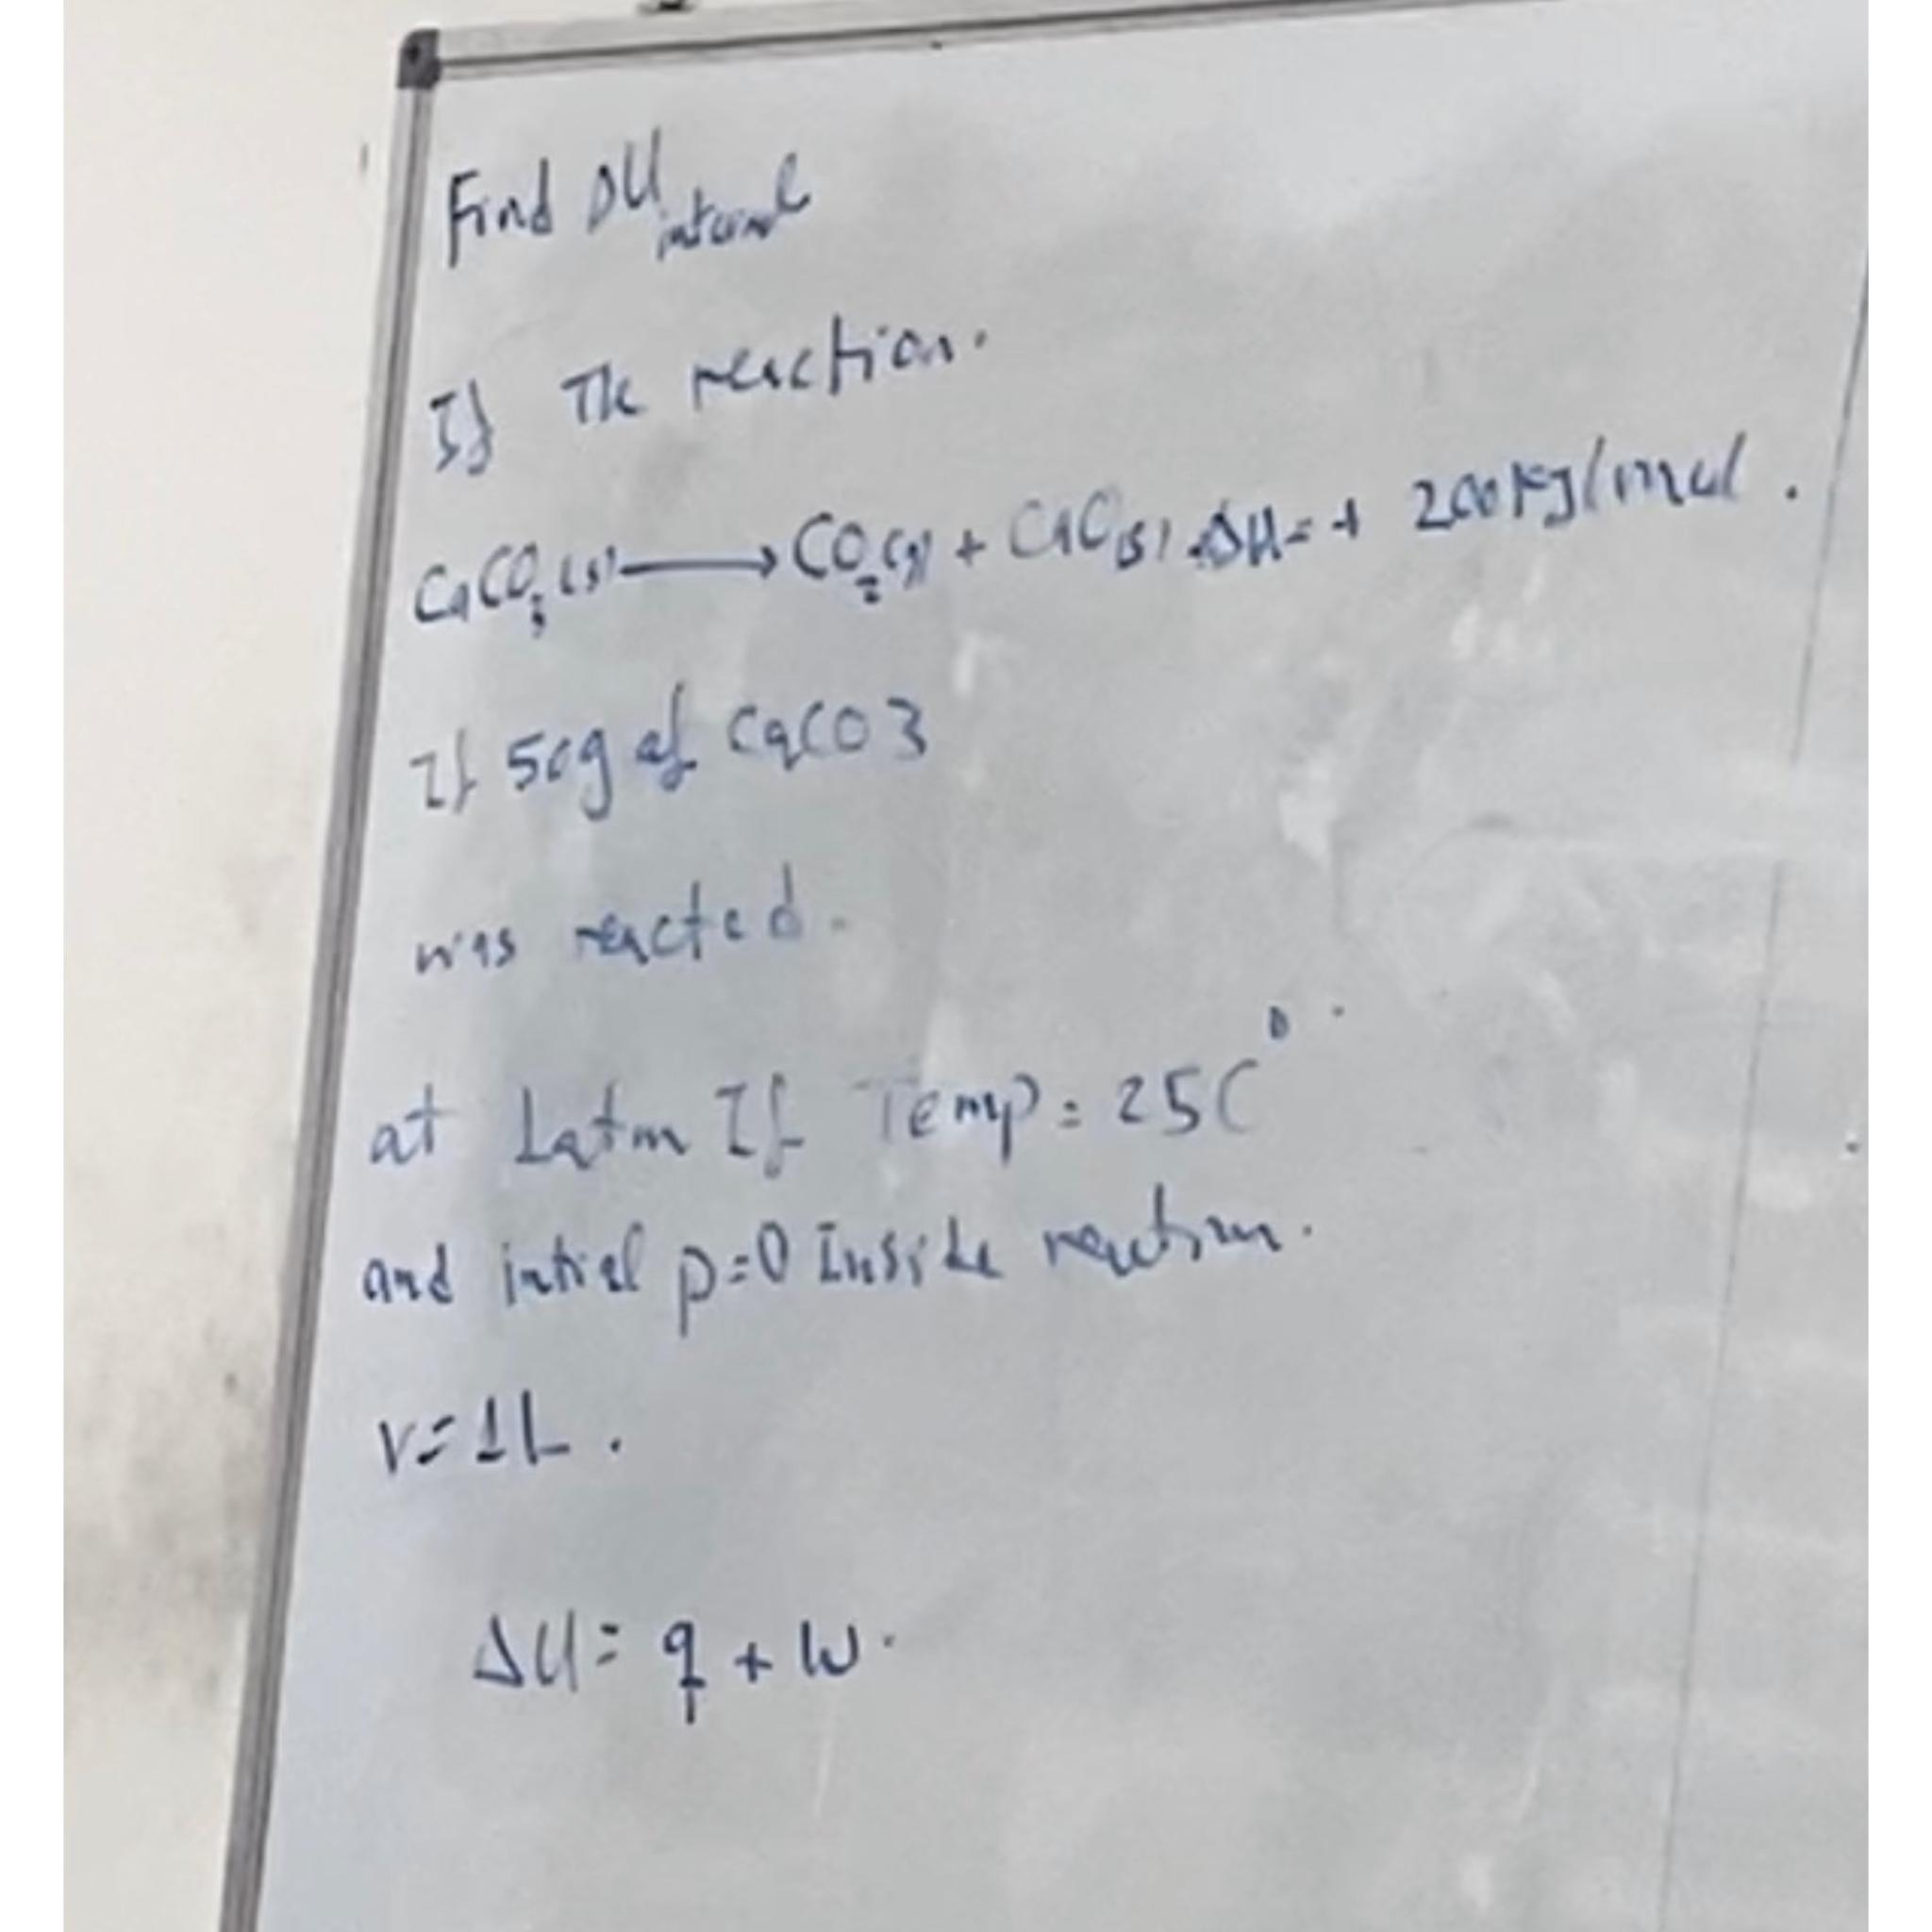 Find ΔU internal
If The reaction.
CaCO3(s) ⟶ CO2(g) + CaO(s) ΔH = + 200 KJ/mol.
If 50g of CaCO3
was reacted.
at 1atm If Temp = 25C°.
and intial p=0 Inside reaction.
V=1L.
ΔU = q + W.